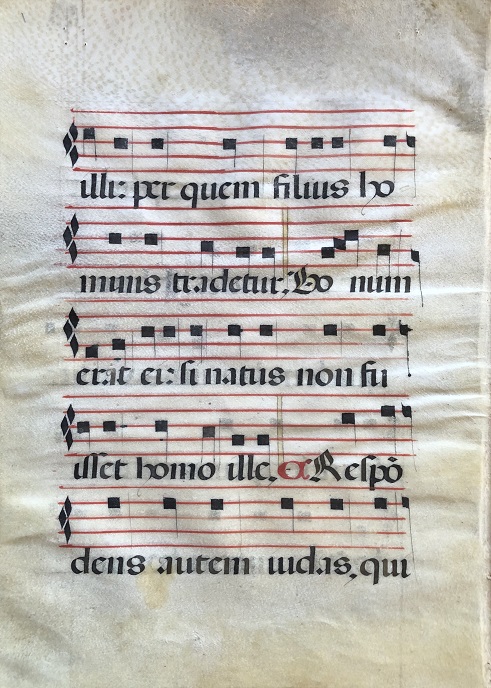 illi: per quem filius ho
minis tradetur, Bo num
erat ei: si natus non fu
isset homo ille. C Respõ
dens autem iudas, qui